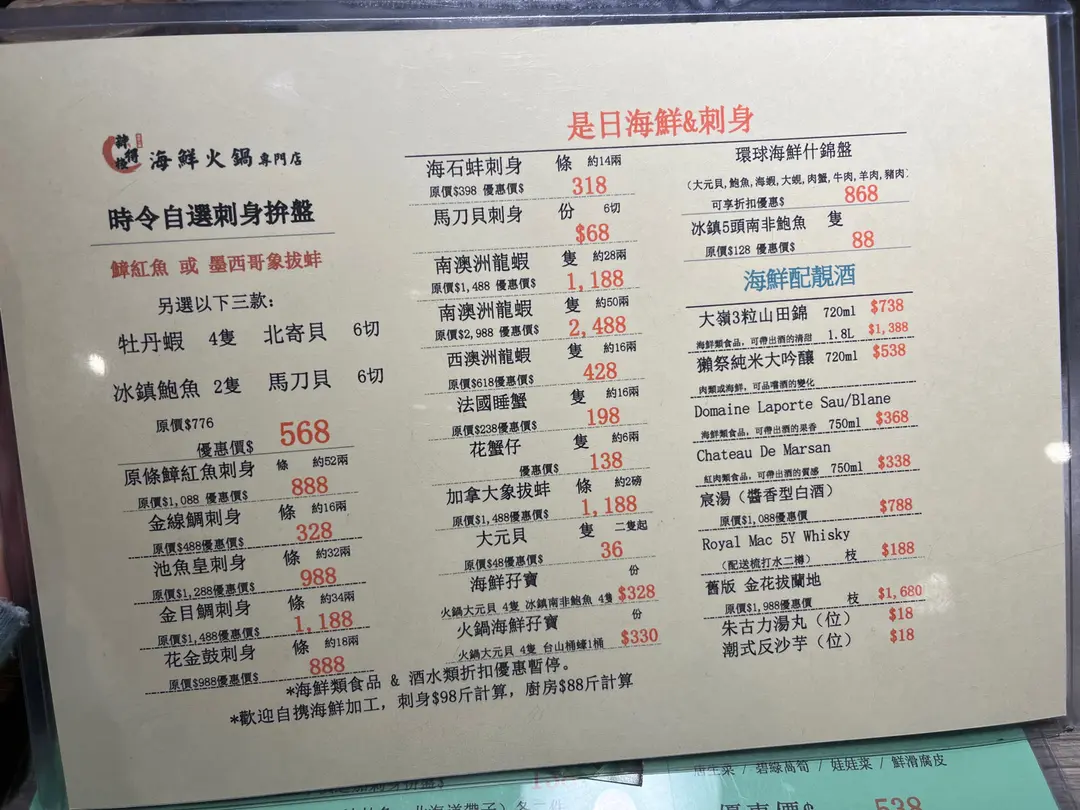 海鮮火鍋專門店
時令自選刺身拚盤
鱆紅魚 或 墨西哥象拔蚌
另選以下三款:
牡丹蝦 4隻 北寄貝 6切
冰鎮鮑魚 2隻 馬刀貝 6切
原價$776
優惠價$ 568
原條鱆紅魚刺身 條 約52兩
原價$1,088 優惠價$ 888
金線鯛刺身 條 約16兩
原價$488優惠價$ 328
池魚皇刺身 條 約32兩
原價$1,288優惠價$ 988
金目鯛刺身 條 約34兩
原價$1,488優惠價$ 1,188
花金鼓刺身 條 約18兩
原價$988優惠價$ 888
是日海鮮&刺身
海石蚌刺身 條 約14兩
原價$398 優惠價$ 318
馬刀貝刺身 份 6切
$68
南澳洲龍蝦 隻 約28兩
原價$1,488 優惠價$ 1,188
南澳洲龍蝦 隻 約50兩
原價$2,988 優惠價$ 2,488
西澳洲龍蝦 隻 約16兩
原價$618優惠價$ 428
法國睡蟹 隻 約16兩
原價$238優惠價$ 198
花蟹仔 隻 約6兩
優惠價$ 138
加拿大象拔蚌 條 約2磅
原價$1,488優惠價$ 1,188
大元貝 隻 二隻起
原價$48優惠價$ 36
海鮮孖寶 份
火鍋大元貝 4隻 冰鎮南非鮑魚 4隻 $328
火鍋海鮮孖寶 份
火鍋大元貝 4隻 台山桶蠔1桶 $330
環球海鮮什錦盤
(大元貝,鮑魚,海蝦,大蜆,肉蟹,牛肉,羊肉,豬肉)
可享折扣優惠$ 868
冰鎮5頭南非鮑魚 隻
原價$128 優惠價$ 88
海鮮配靚酒
大嶺3粒山田錦 720ml $738
海鮮類食品，可帶出酒的清甜 1.8L $1,388
獺祭純米大吟釀 720ml $538
肉類或海鮮，可品嚐酒的變化
Domaine Laporte Sau/Blane
海鮮類食品，可帶出酒的果香 750ml $368
Chateau De Marsan
紅肉類食品，可帶出酒的質感 750ml $338
宸湯（醬香型白酒）
原價$1,088優惠價 $788
Royal Mac 5Y Whisky
（配送梳打水二樽） 枝 $188
舊版 金花拔蘭地
原價$1,988優惠價 枝 $1,680
朱古力湯丸（位） $18
潮式反沙芋（位） $18
*海鮮類食品 & 酒水類折扣優惠暫停。
*歡迎自携海鮮加工，刺身$98斤計算，廚房$88斤計算
唐生菜 / 碧綠萵筍 / 娃娃菜 / 鮮滑腐皮
優惠價$ 538